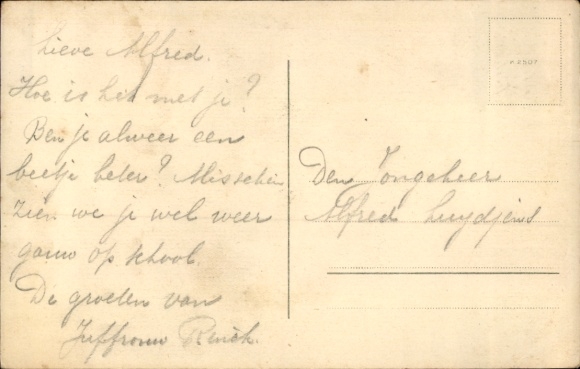 Lieve Alfred.
Hoe is het met je?
Ben je alweer een
beetje beter? Misschien
zien we je wel weer
gauw op school.
De groeten van
Juffrouw
Den Jongeheer
Alfred Luydjens